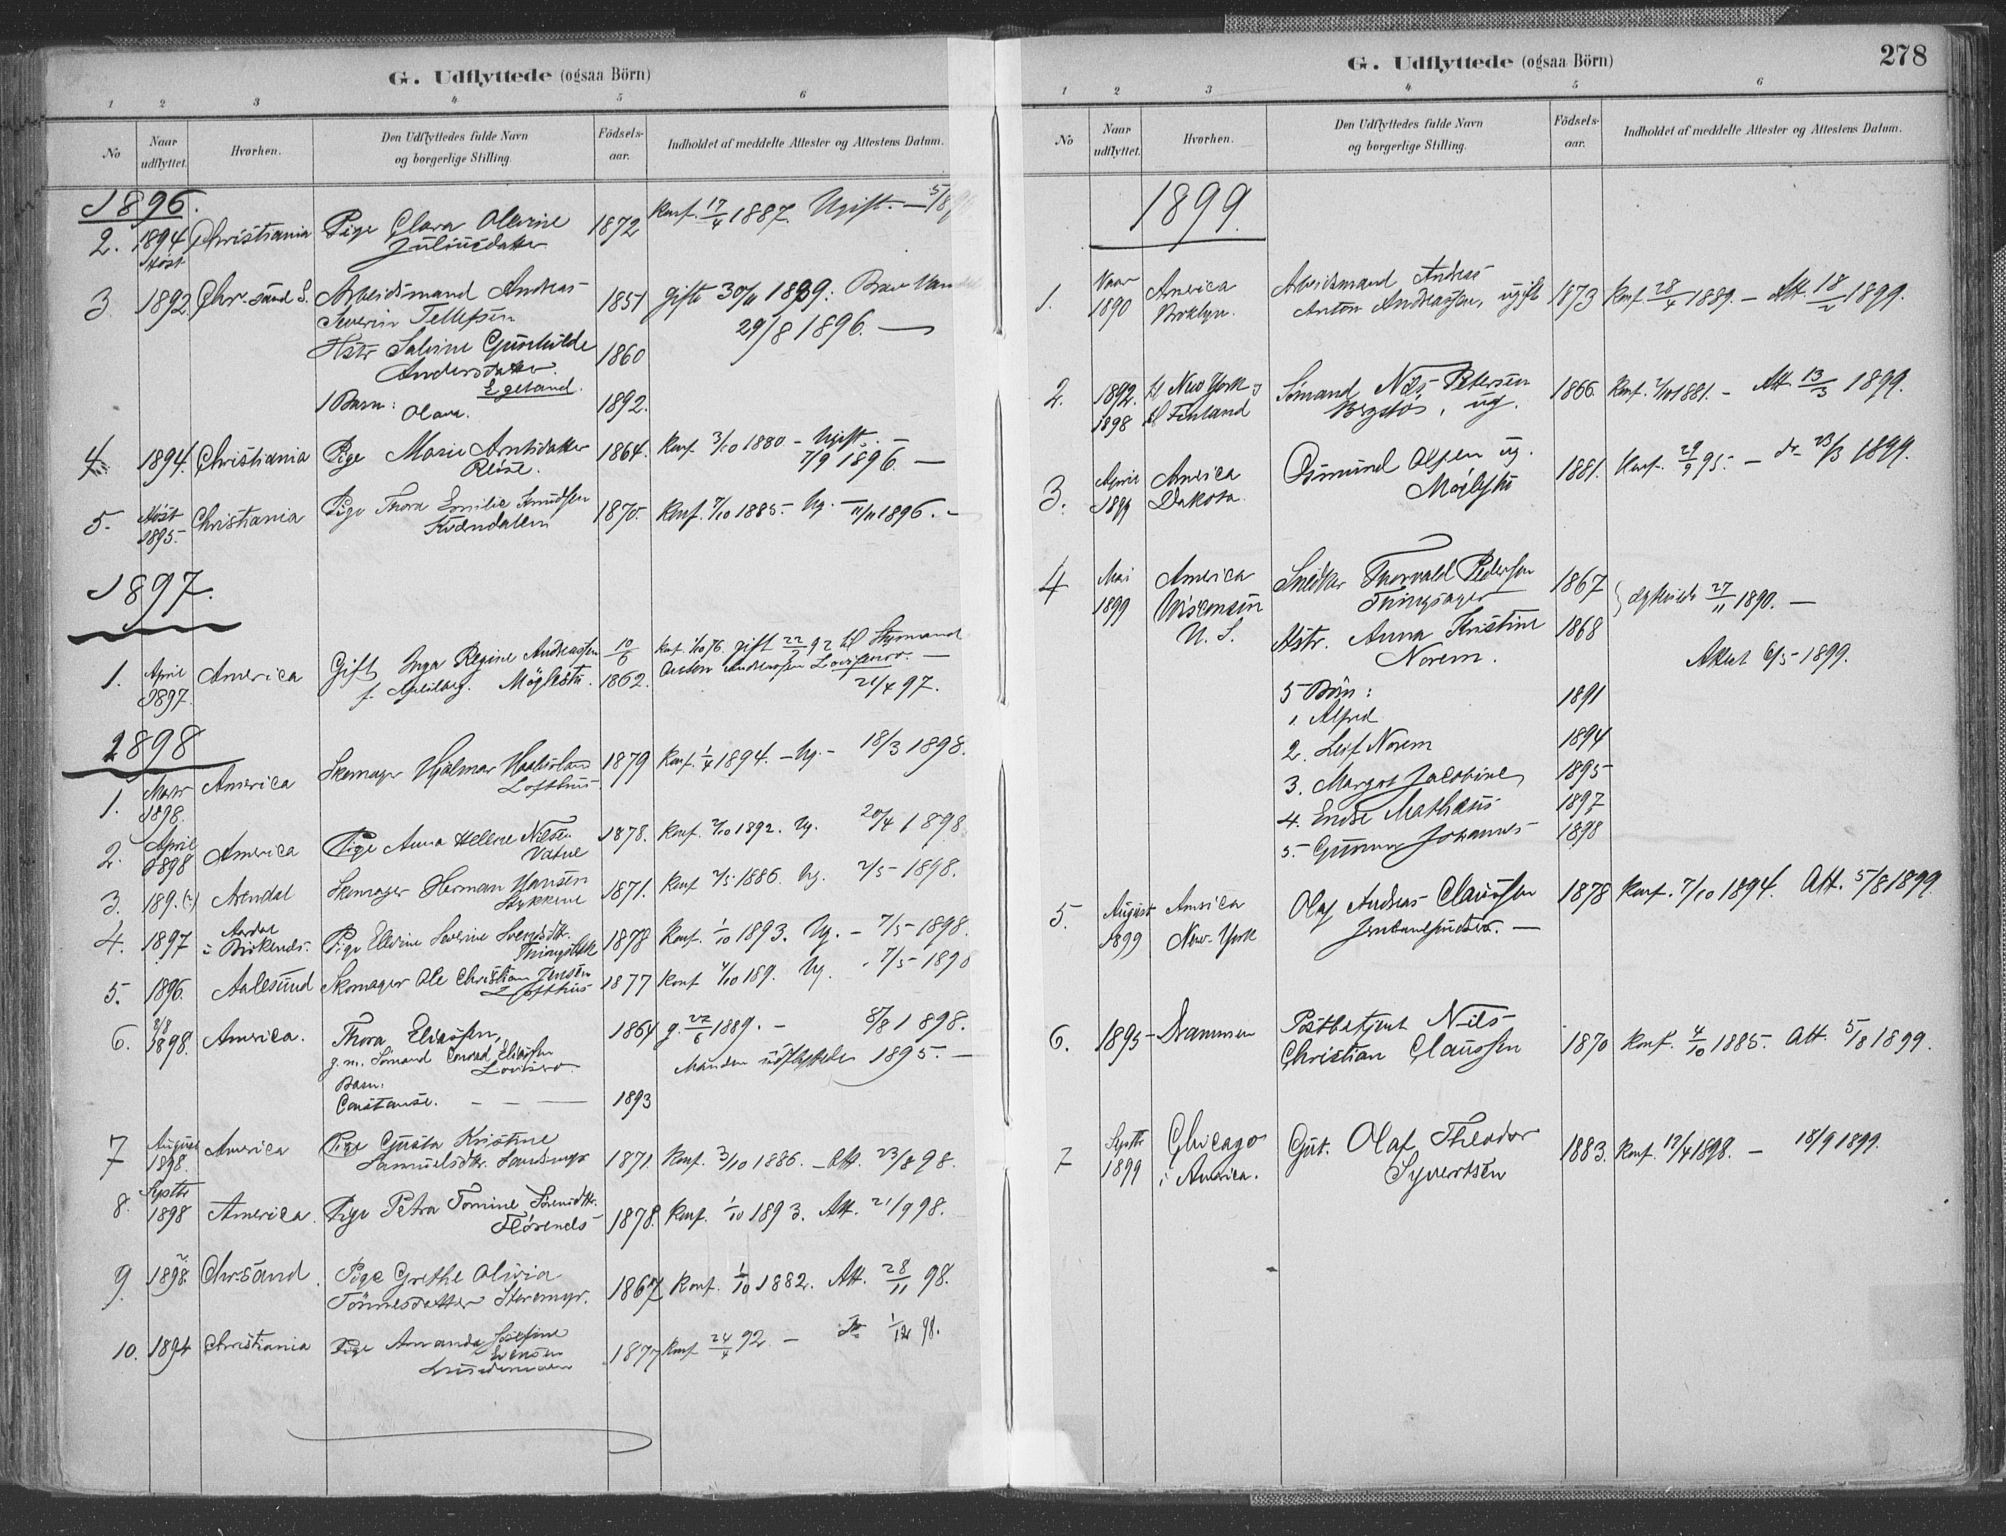 G. Udflyttede (ogsaa Börn)
1 2 3 4 5 6
No
Naar udflyttet.
Hvorhen.
Den Udflyttedes fulde Navn og borgerlige Stilling.
Födsels-aar.
Indholdet af meddelte Attester og Attestens Datum.
1896.
2. 1894 Christiania Pige Clara Olevine 1872 Konf. 17/4 1887. Ugift. —
Høst Juliusdatter
3 1892 Chr.sand S. Arbeidsmand Andreas 1851 gift 30/11 1889.
Severin Tellefsen 29/8 1896. —
Hstr Salvine Gunhilde 1860
Andersdatter.
Egeland.
1 Barn: Olava. 1892.
4 1894. Christiania Pige Marie Arntsdatter 1864. Konf. 3/10 1880 – Ugift.
7/9 1896. —
5. Høst Christiania Pige Thora Emilie Knudsen 1870. Konf. 4/10 1885. – Ug. 11/11 1896. –
1895. Kvendalen
1897.
1. April America Gift Inga Regine Andreassen 10/6 gift 22/7 92 til Styrmand
1897. Møglestu. 1862. Anton Andreassen —
21/4 97.
1898
1. Marts America Skomager Hjalmar 1879 Konf. 1/4 1894. – Ug. – 18/3 1898.
1898. Lofthus
2. April America Pige Anna Helene Nilsen 1878. Konf. 2/10 1892. Ug. 20/4 1898
1898 Vatne
3. 189.(?) Arendal Skomager Herman Hansen 1871. Konf. 2/5 1886. Ug. 2/5 1898.
Stykkene
4. 1897 Birkenes. Pige Elevine Severine 1878 Konf. 1/10 1893. Ug. – 7/5 1898.
5. 1896. Aalesund Skomager Ole Christian Jensen 1877 Konf. 4/10 189. Ug. 7/5 1898
Lofthus
6. 2/8 America. Thora Eliassen, 1864 g. 22/6 1889. – 8/8 1898.
1898. g. m. Sømand Conrad Eliassen Manden udflyttede 1895. –
Barn:
Constanse. – – — 1893
7 August America Pige Gusta Kristine 1871. Konf. 3/10 1886. – Att. 23/8 98.
1898. Samuelsdtr.
8. Septbr America. Pige Petra Tomine Sørensdtr. 1878. Konf. 1/10 1893. Att. 21/9 98.
1898 Flørenes
9 1898. Chr.sand. Pige Grethe Olivia 1867 Konf. 1/10 1882. Att. 28/11 98.
Tønnesdatter Storemyr.
10. 1894 Christiania Pige Amanda Josefine 1877 Konf. 24/4 92 – do 1/12 98.
G. Udflyttede (ogsaa Börn) 278
1 2 3 4 5 6
No
Naar udflyttet.
Hvorhen.
Den Udflyttedes fulde Navn og borgerlige Stilling.
Födsels-aar.
Indholdet af meddelte Attester og Attestens Datum.
1899.
1. Vaar America Arbeidsmand Andreas 1873 Konf. 28/4 1889. – Att. 18/2 1899.
1890 Broklyn. Anton Andreassen, ugift
2. 1892. til New York og Sømand Nils Petersen 1866. Konf. 2/10 1881. – Att. 13/3 1899.
1898 til Finland ug.
3. April America Osmund Olsen ug. 1881. Konf. 29/9 95. – do 23/3 1899.
1899 Dakota. Møglestu
4 Mai America Snedker Thorvald Pedersen 1867
1899 Wisconsin Thingsager 27/11 1890. —
U. S. Hstr. Anna Kristine 1868
Norem. Attest 6/5 1899.
5 Börn:
1. Alfred 1891
2. Leif Norem 1894
3. Margot Jacobine 1895
4. Endre Mathæus 1897
5. Gunnar Johannes 1898
5. August America Olaf Andreas Claussen 1878 Konf. 7/10 1894. Att. 5/8 1899.
1899 New-York
6. 1895 Drammen Postbetjent Nils 1870 Konf. 4/10 1885. Att. 5/8 1899.
Christian Claussen
7 Septbr Chicago Gut. Olaf Theodor 1883. Konf. 17/4 1898. – 18/9 1899.
1899 i America. Syvertsen